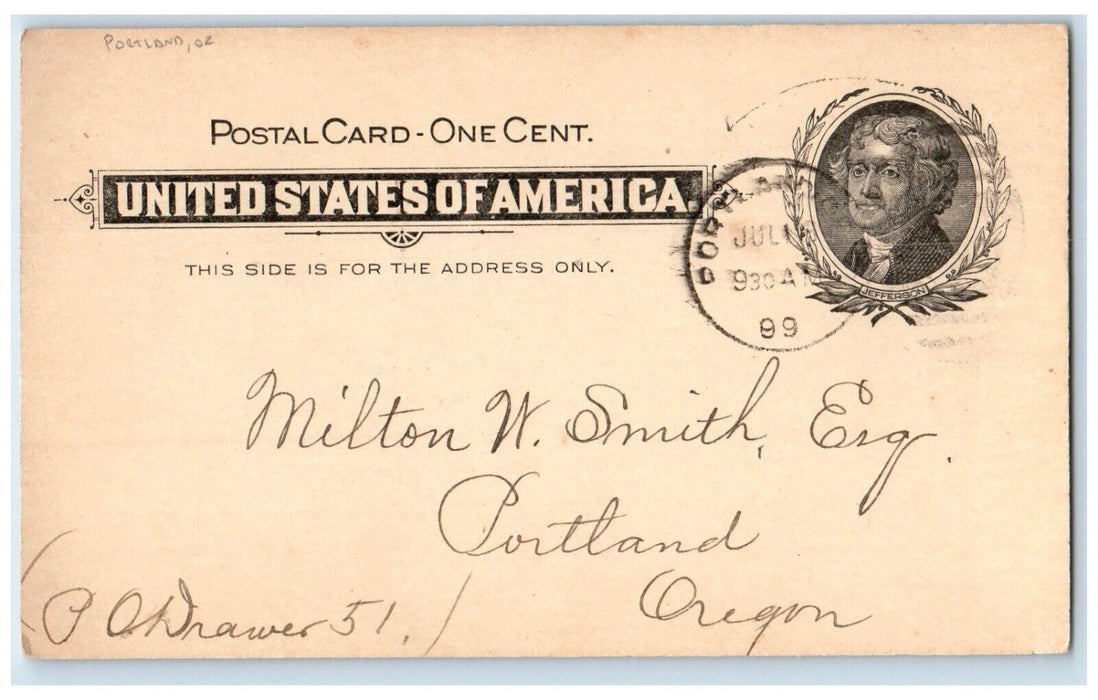 PORTLAND, OR
POSTAL CARD - ONE CENT.
UNITED STATES OF AMERICA.
THIS SIDE IS FOR THE ADDRESS ONLY.
PORTLAND
JUL
930 AM
99
JEFFERSON
Milton W. Smith, Esq.
Portland
Oregon
(P O. Drawer 51.)